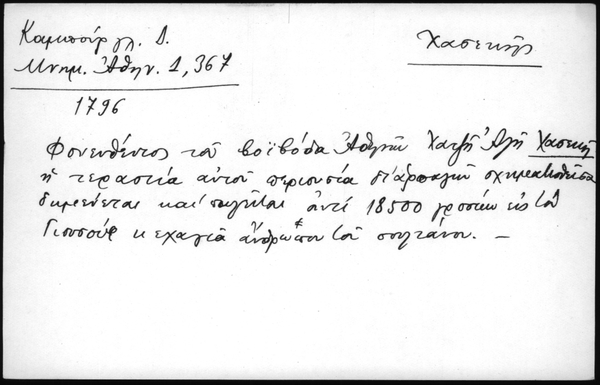 Καμπούρ γλ. Δ.
Χασεκῆς
Μνημ. Ἀθην. 1, 367
1796
Φονευθέντος τοῦ βοϊβόδα Ἀθηνῶν Χατζῆ Ἀλῆ Χασεκῆ
ἡ τεραστία αὐτοῦ περιουσία δι' ἁρπαγῶν σχηματισθεῖσα
δημεύεται καὶ πωλεῖται ἀντί 18500 γροσίων εἰς τὸν
Γιουσούφ κεχαγιᾶ ἄνθρωπον τοῦ σουλτάνου. –